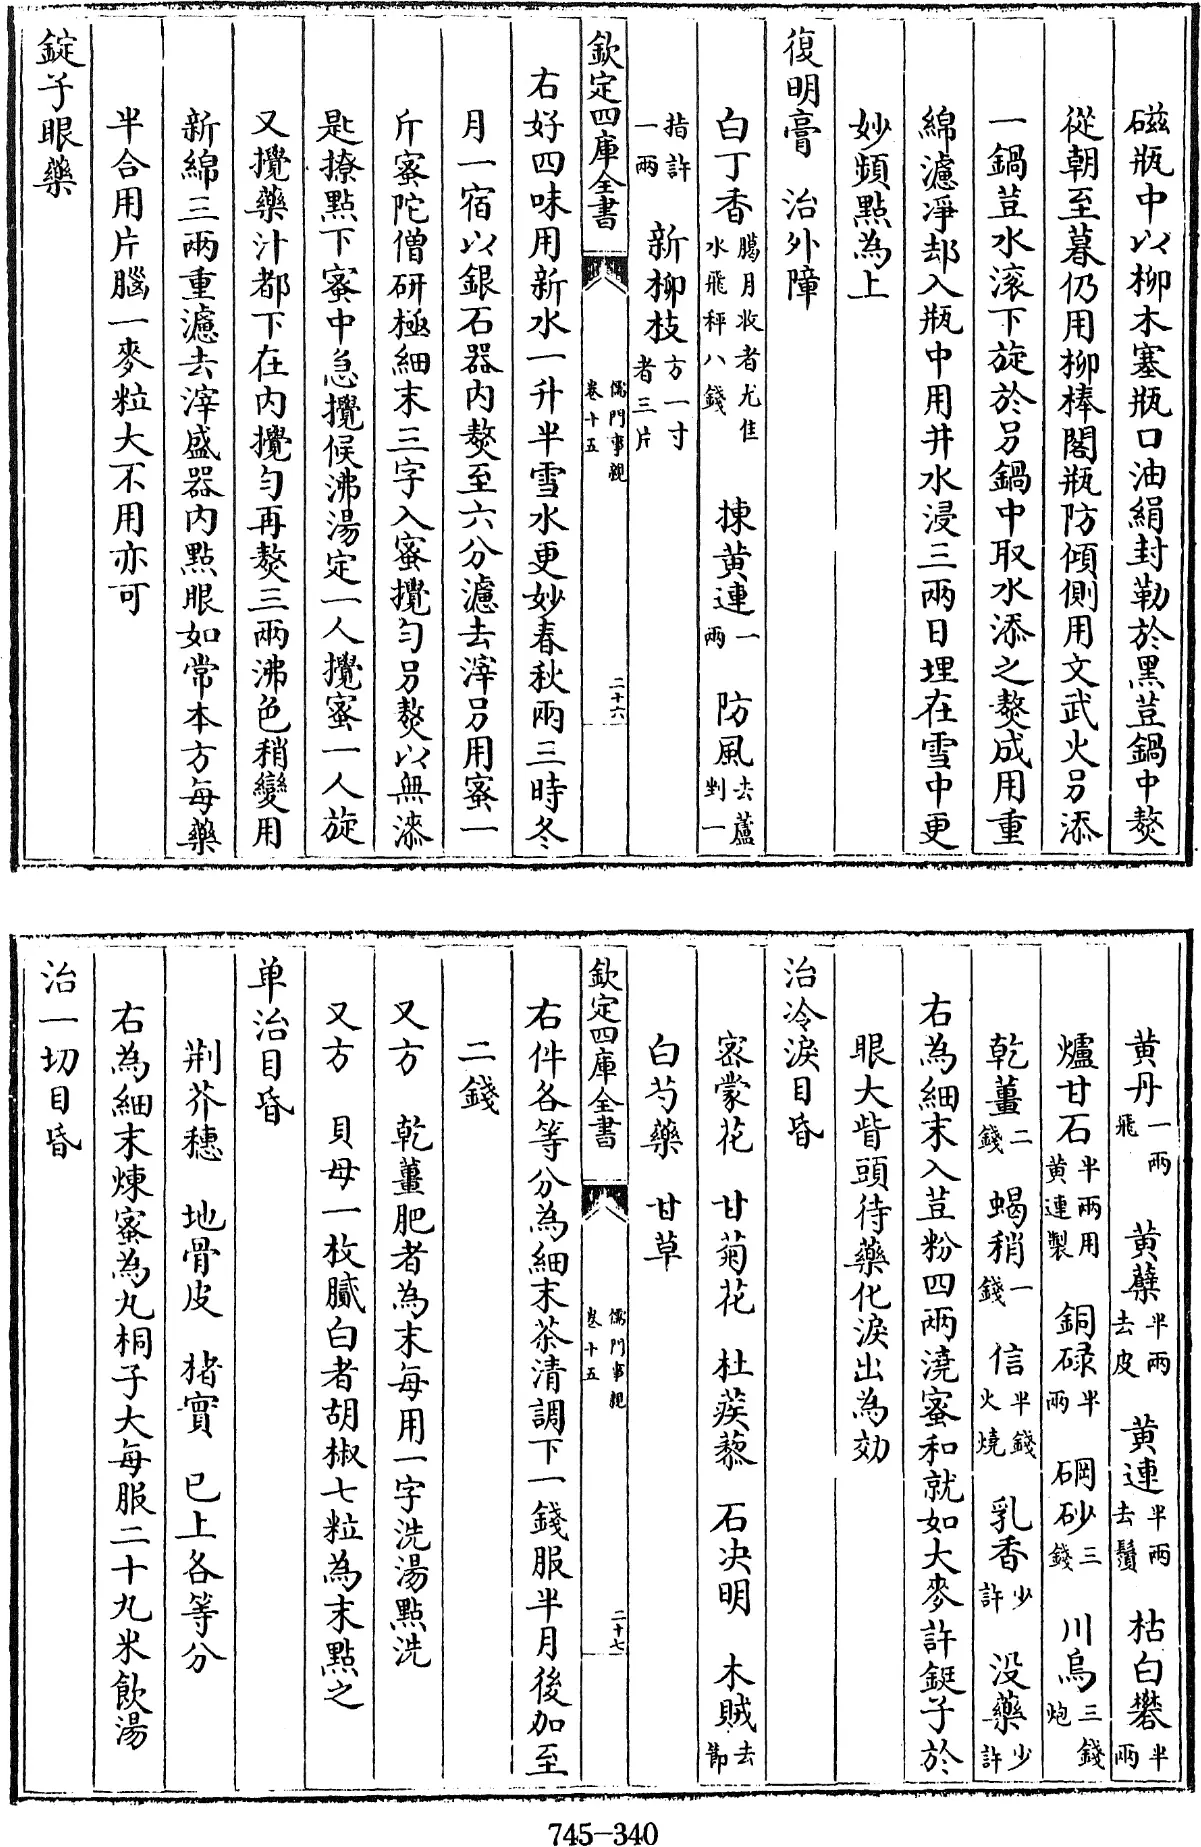 磁瓶中以柳木塞瓶口油絹封勒於黑荳鍋中熬
從朝至暮仍用柳棒閣瓶防傾側用文武火另添
一鍋荳水滚下旋於另鍋中取水添之熬成用重
綿濾淨却入瓶中用井水浸三兩日埋在雪中更
妙頻點為上
復明膏　治外障
白丁香臈月收者尤佳水飛秤八錢　揀黄連一兩　防風去蘆剉一
指許一兩　新柳枝方一寸者三片
欽定四庫全書　儒門事親卷十五　二十六
右好四味用新水一升半雪水更妙春秋兩三時冬
月一宿以銀石器内熬至六分濾去滓另用蜜一
斤蜜陀僧研極細末三字入蜜攪匀另熬以無漆
匙撩點下蜜中急攪候沸湯定一人攪蜜一人旋
又攪藥汁都下在内攪匀再熬三兩沸色稍變用
新綿三兩重濾去滓盛器内點眼如常本方每藥
半合用片腦一麥粒大不用亦可
錠子眼藥
黄丹一兩飛　黄蘗半兩去皮　黄連半兩去鬚　枯白礬半兩
爐甘石半兩用黄連製　銅碌半兩　硇砂三錢　川烏三錢炮
乾薑二錢　蝎稍一錢　信半錢火燒　乳香少許　没藥少許
右為細末入荳粉四兩澆蜜和就如大麥許鋌子於
眼大眥頭待藥化淚出為効
治冷淚目昏
宻蒙花　甘菊花　杜蒺藜　石决明　木賊去節
白芍藥　甘草
欽定四庫全書　儒門事親卷十五　二十七
右件各等分為細末茶清調下一錢服半月後加至
二錢
又方　乾薑肥者為末每用一字洗湯點洗
又方　貝母一枚膩白者胡椒七粒為末點之
单治目昏
荆芥穗　地骨皮　楮實　已上各等分
右為細末煉蜜為丸桐子大每服二十九米飲湯
治一切目昏
745-340